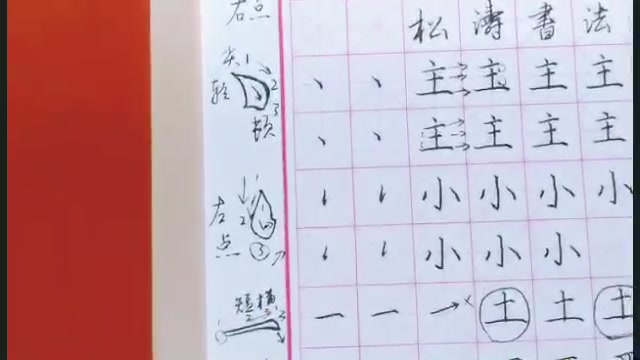 右点
松涛書法
尖 1 2 3
轻
顿
丶 丶 主 主 主 主
丶 丶 主 主 主 主
左点
1 2 ③
小 小 小 小
小 小 小
短横
3
一 一 × 土 土 土